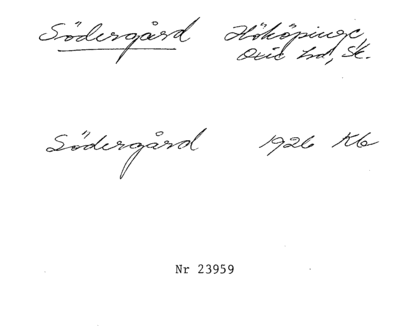 Södergård Hököpinge,
Oxie hd, Sk.
Södergård 1926 Kb
Nr 23959